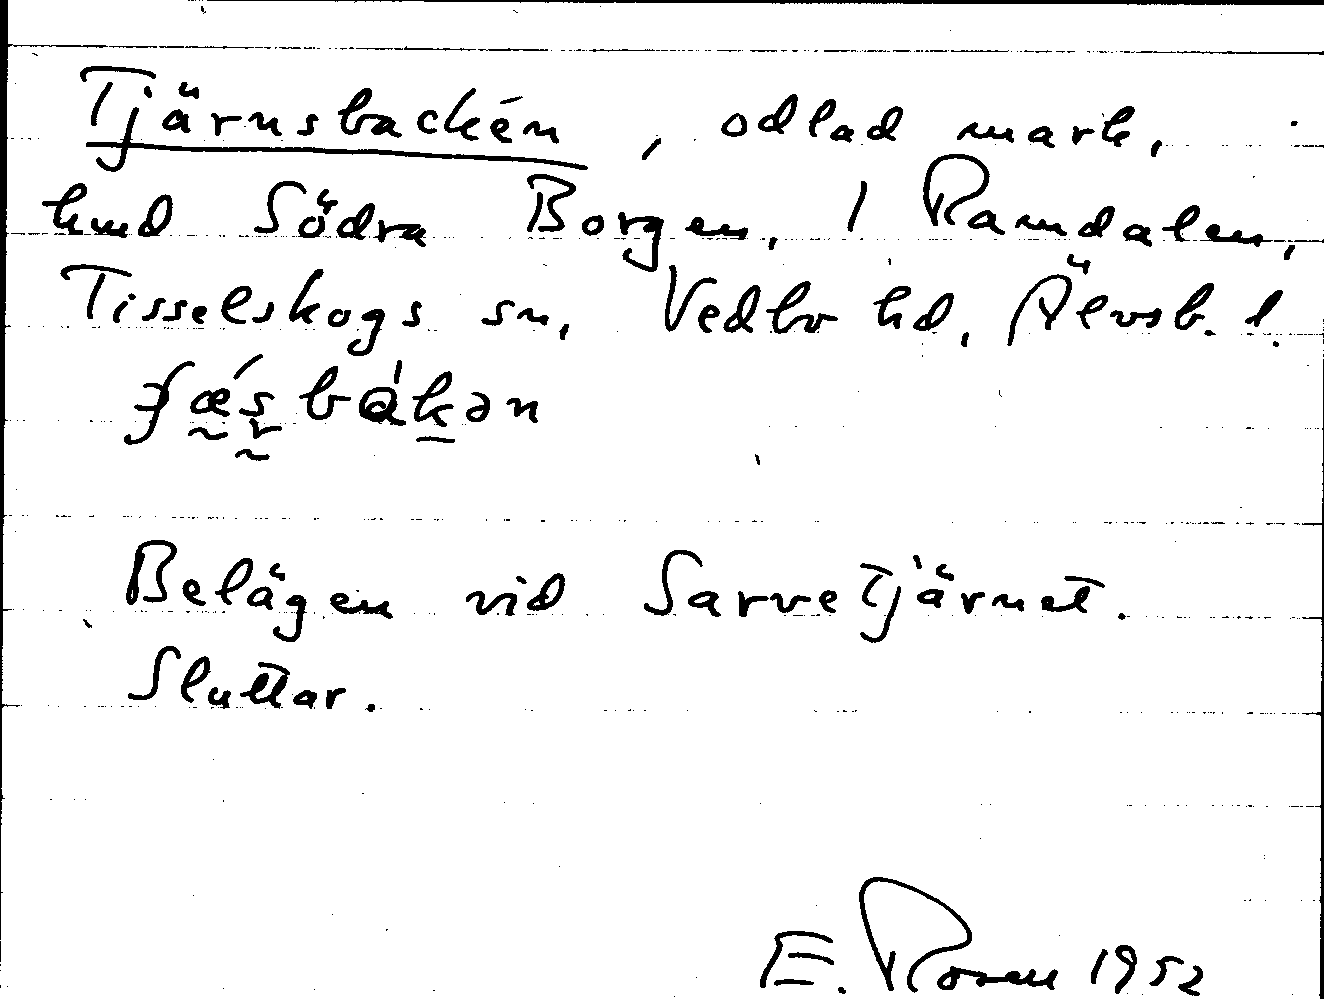 Tjärnsbacken, odlad mark,
hmd Södra Borgen, 1 Ramdalen,
Tisselskogs sn, Vedbo hd, Älvsb. l.
Belägen vid Sarvetjärnet.
Sluttar.
E. Rosen 1952